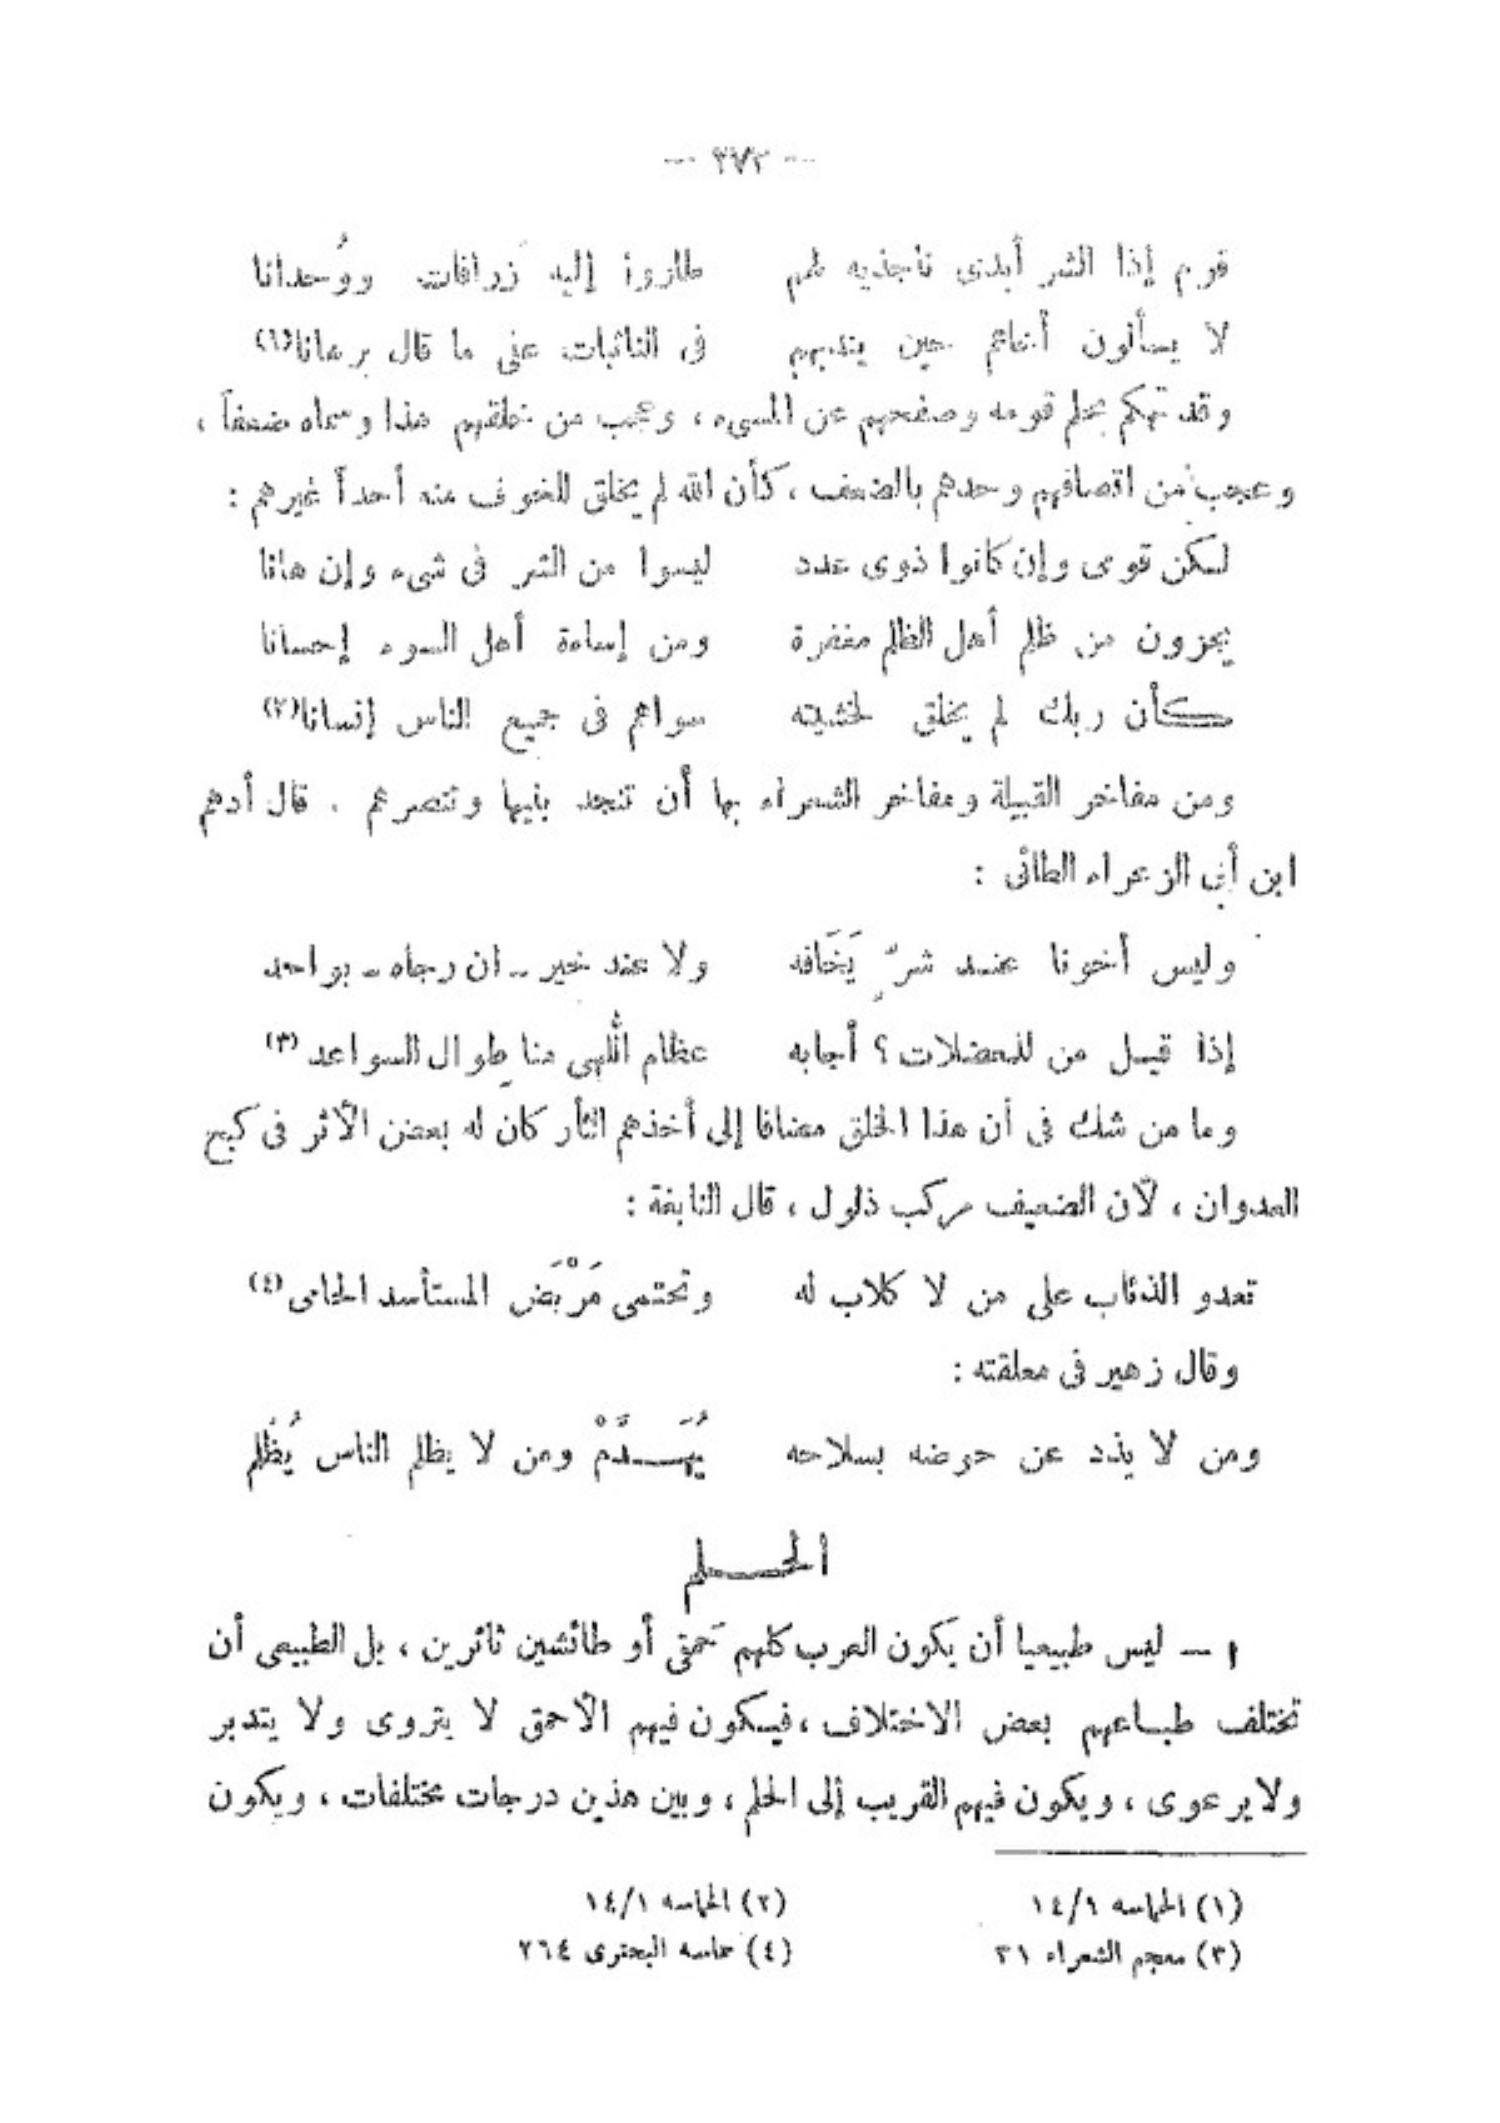 — ٢٧٢ —
قوم إذا الشر أبدى ناجذيه لهم طاروا إليه زرافات ووُحدانا
لا يسألون أخاهم حين يندبهم فى النائبات على ما قال برهانا(١)
وقد تهكم بحلم قومه وصفحهم عن المسىء ، وعجب من خلقهم هذا وسماه ضعفاً ،
وعجب من اتصافهم وحدهم بالضعف ، كأن الله لم يخلق للخوف منه أحداً غيرهم :
لكن قومى وإن كانوا ذوى عدد ليسوا من الشر فى شىء وإن هانا
يجزون من ظلم أهل الظلم مغفرة ومن إساءة أهل السوء إحسانا
كأن ربك لم يخلق لخشيته سواهم فى جميع الناس إنسانا(٢)
ومن مفاخر القبيلة ومفاخر الشعراء بها أن تنجد بنيها وتنصرهم . قال أدهم
ابن أبى الزعراء الطائى :
وليس أخونا عند شرٍّ يَخَافه ولا عند خير – ان رجاه – بواحد
إذا قيل من للمعضلات ؟ أجابه عظام اللُّهى منا طِوال السواعد (٣)
وما من شك فى أن هذا الخلق مضافا إلى أخذهم الثأر كان له بعض الأثر فى كبح
العدوان ، لأن الضعيف مركب ذلول ، قال النابغة :
تعدو الذئاب على من لا كلاب له وتحتمى مَرْبَض المستأسد الحامى(٤)
وقال زهير فى معلقته :
ومن لا يذد عن حوضه بسلاحه يُهَــدَّمْ ومن لا يظلم الناس يُظْلم
الحــلم
١ – ليس طبيعيا أن يكون العرب كلهم حَمقى أو طائشين ثائرين ، بل الطبيعى أن
تختلف طباعهم بعض الاختلاف ، فيكون فيهم الأحمق لا يتروى ولا يتدبر
ولا يرعوى ، ويكون فيهم القريب إلى الحلم ، وبين هذين درجات مختلفات ، ويكون
(١) الحماسه ١/١٤ (٢) الحماسه ١/١٤
(٣) معجم الشعراء ٣١ (٤) حماسه البحترى ٢٦٤